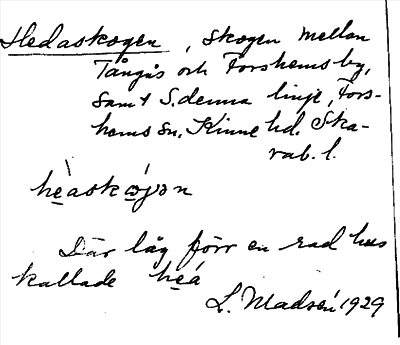 Hedaskogen, skogen mellan
Tångås och Forshems by,
samt S. denna linje, Fors-
hems sn. Kinne hd. Ska-
rab. l.
hèaskó̱jən
Där låg förr en rad hus
kallade he̱á
L. Madsén 1929